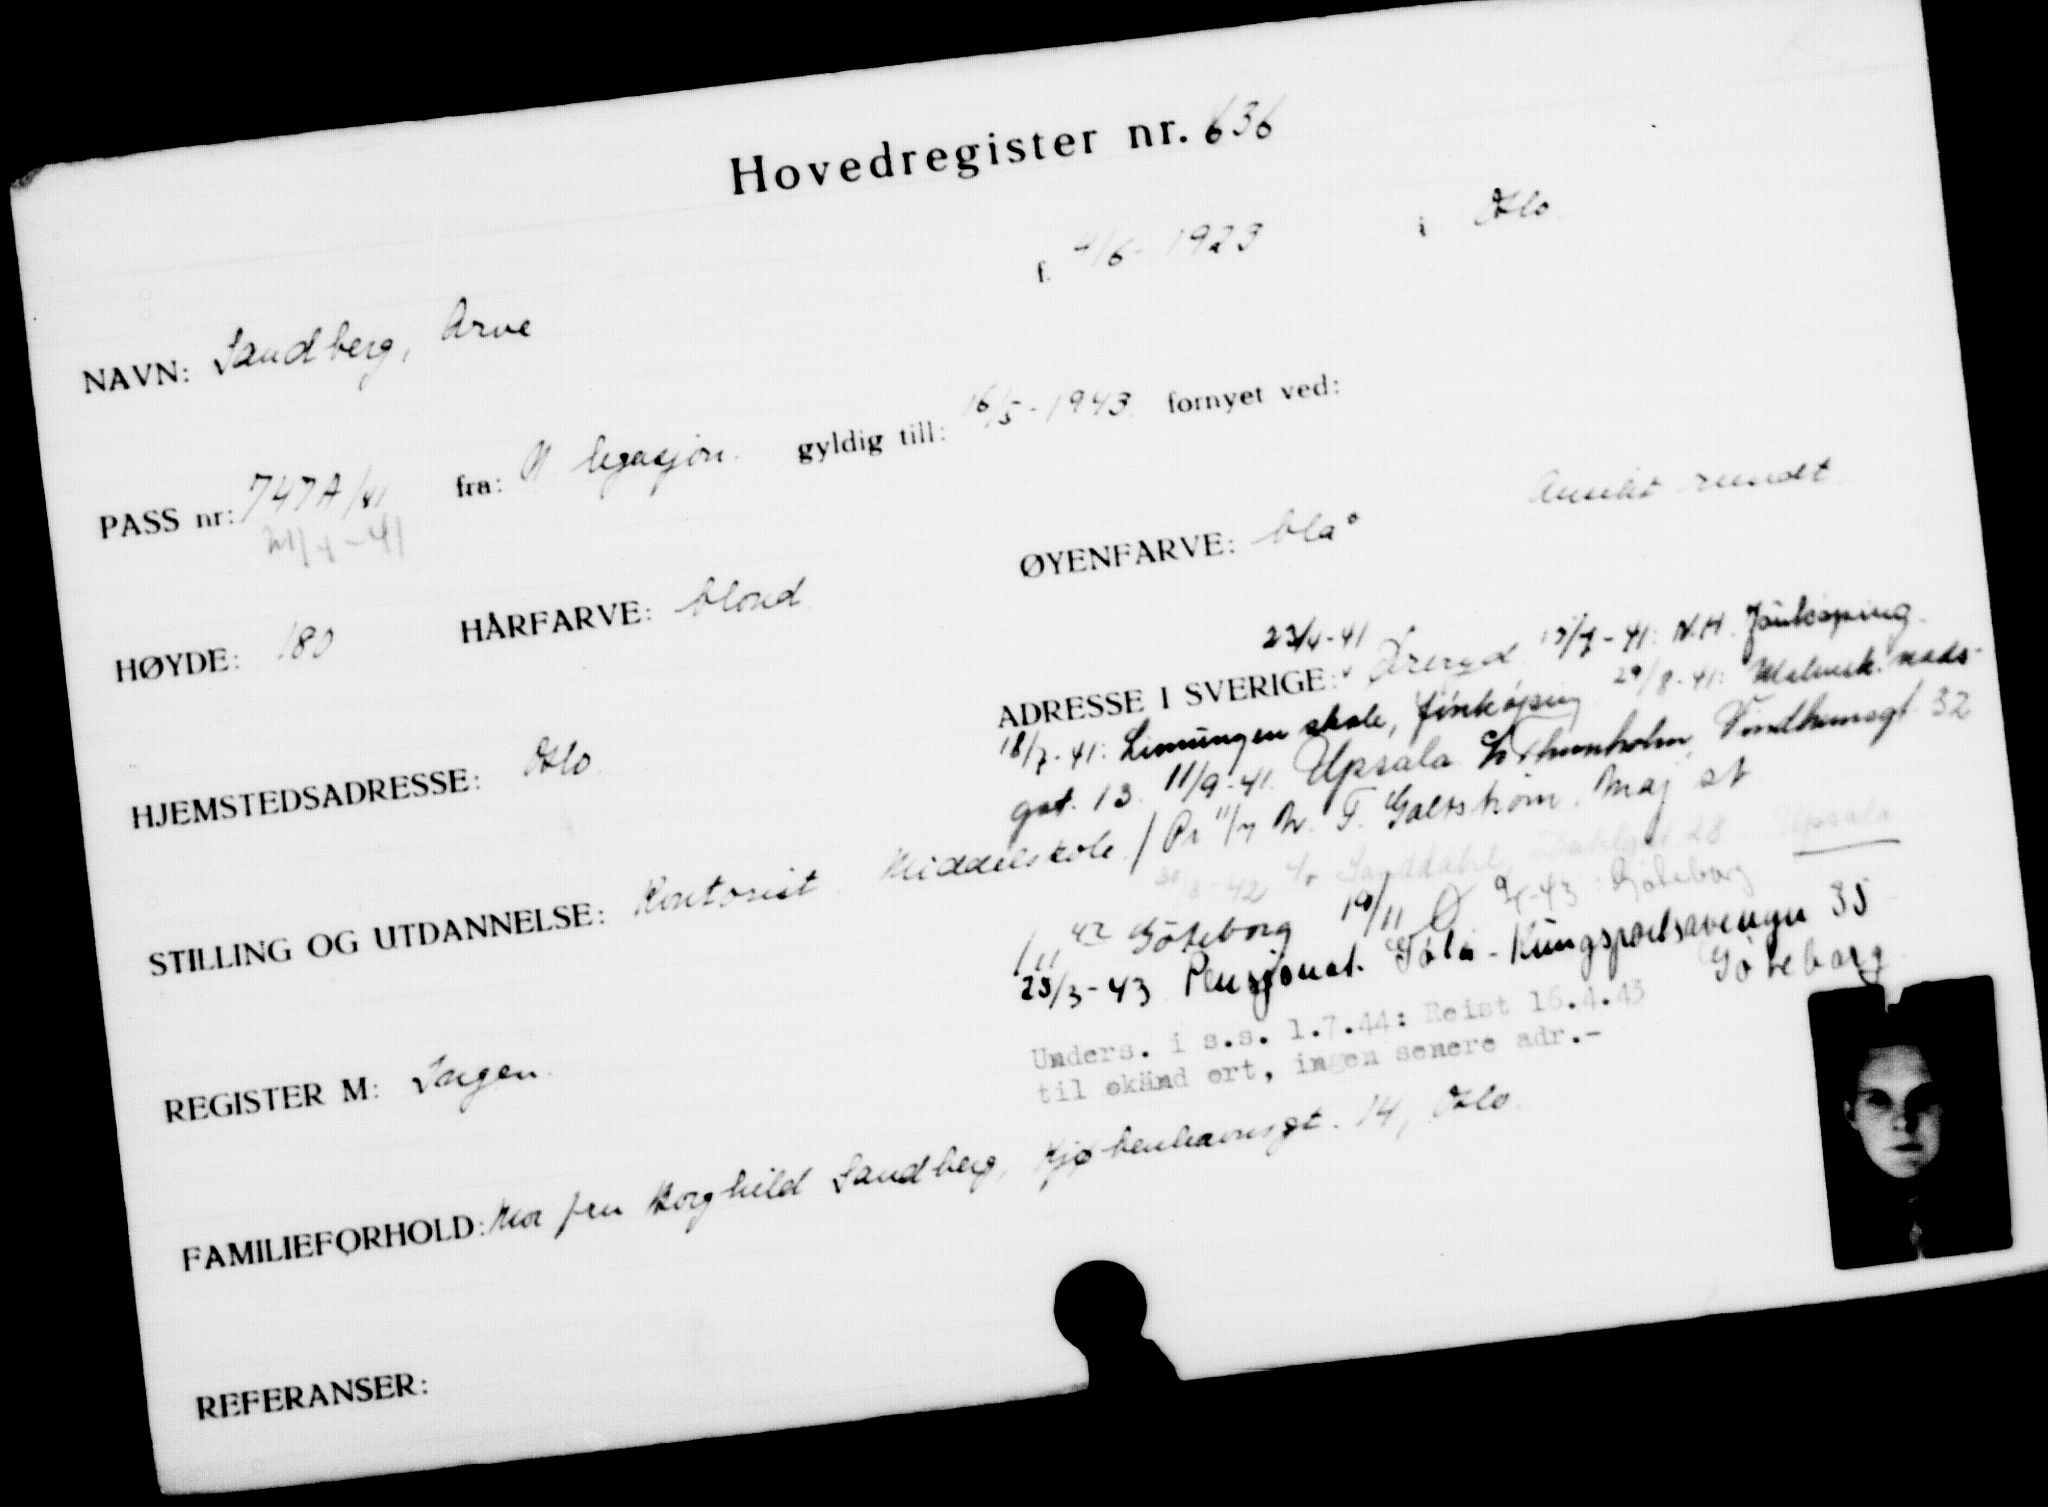 Hovedregister nr. 636
NAVN: Sandberg, Arve f. 4/6-1923 i Oslo
PASS nr: 747A/41 fra: N legasjon. gyldig till: 16/5-1943 fornyet ved:
21/4-41
HØYDE: 180 HÅRFARVE: blond ØYENFARVE: blå Ansikt rundt
HJEMSTEDSADRESSE: Oslo ADRESSE I SVERIGE: 23/4-41 Öreryd 17/7-41: N.H. Jönköping
18/7-41: skole, Jönköping 29/8-41:
gat. 13. 11/9-41. Upsala c/o 32
STILLING OG UTDANNELSE: Kontorist Middelskole / Pr 11/9 T. Maj st
c/o 28 Upsala
1/11 42 Göteborg 19/11 -43: Göteborg
25/3-43 Pensjonat Kungsportsavenyn 35
Göteborg
REGISTER M: Ingen
Unders. i s.s. 1.7.44: Reist 16.4.43
til okänd ort, ingen senere adr.-
FAMILIEFORHOLD: Mor fru Borghild Sandberg, Kjøbenhavnsgt. 14, Oslo.
REFERANSER: